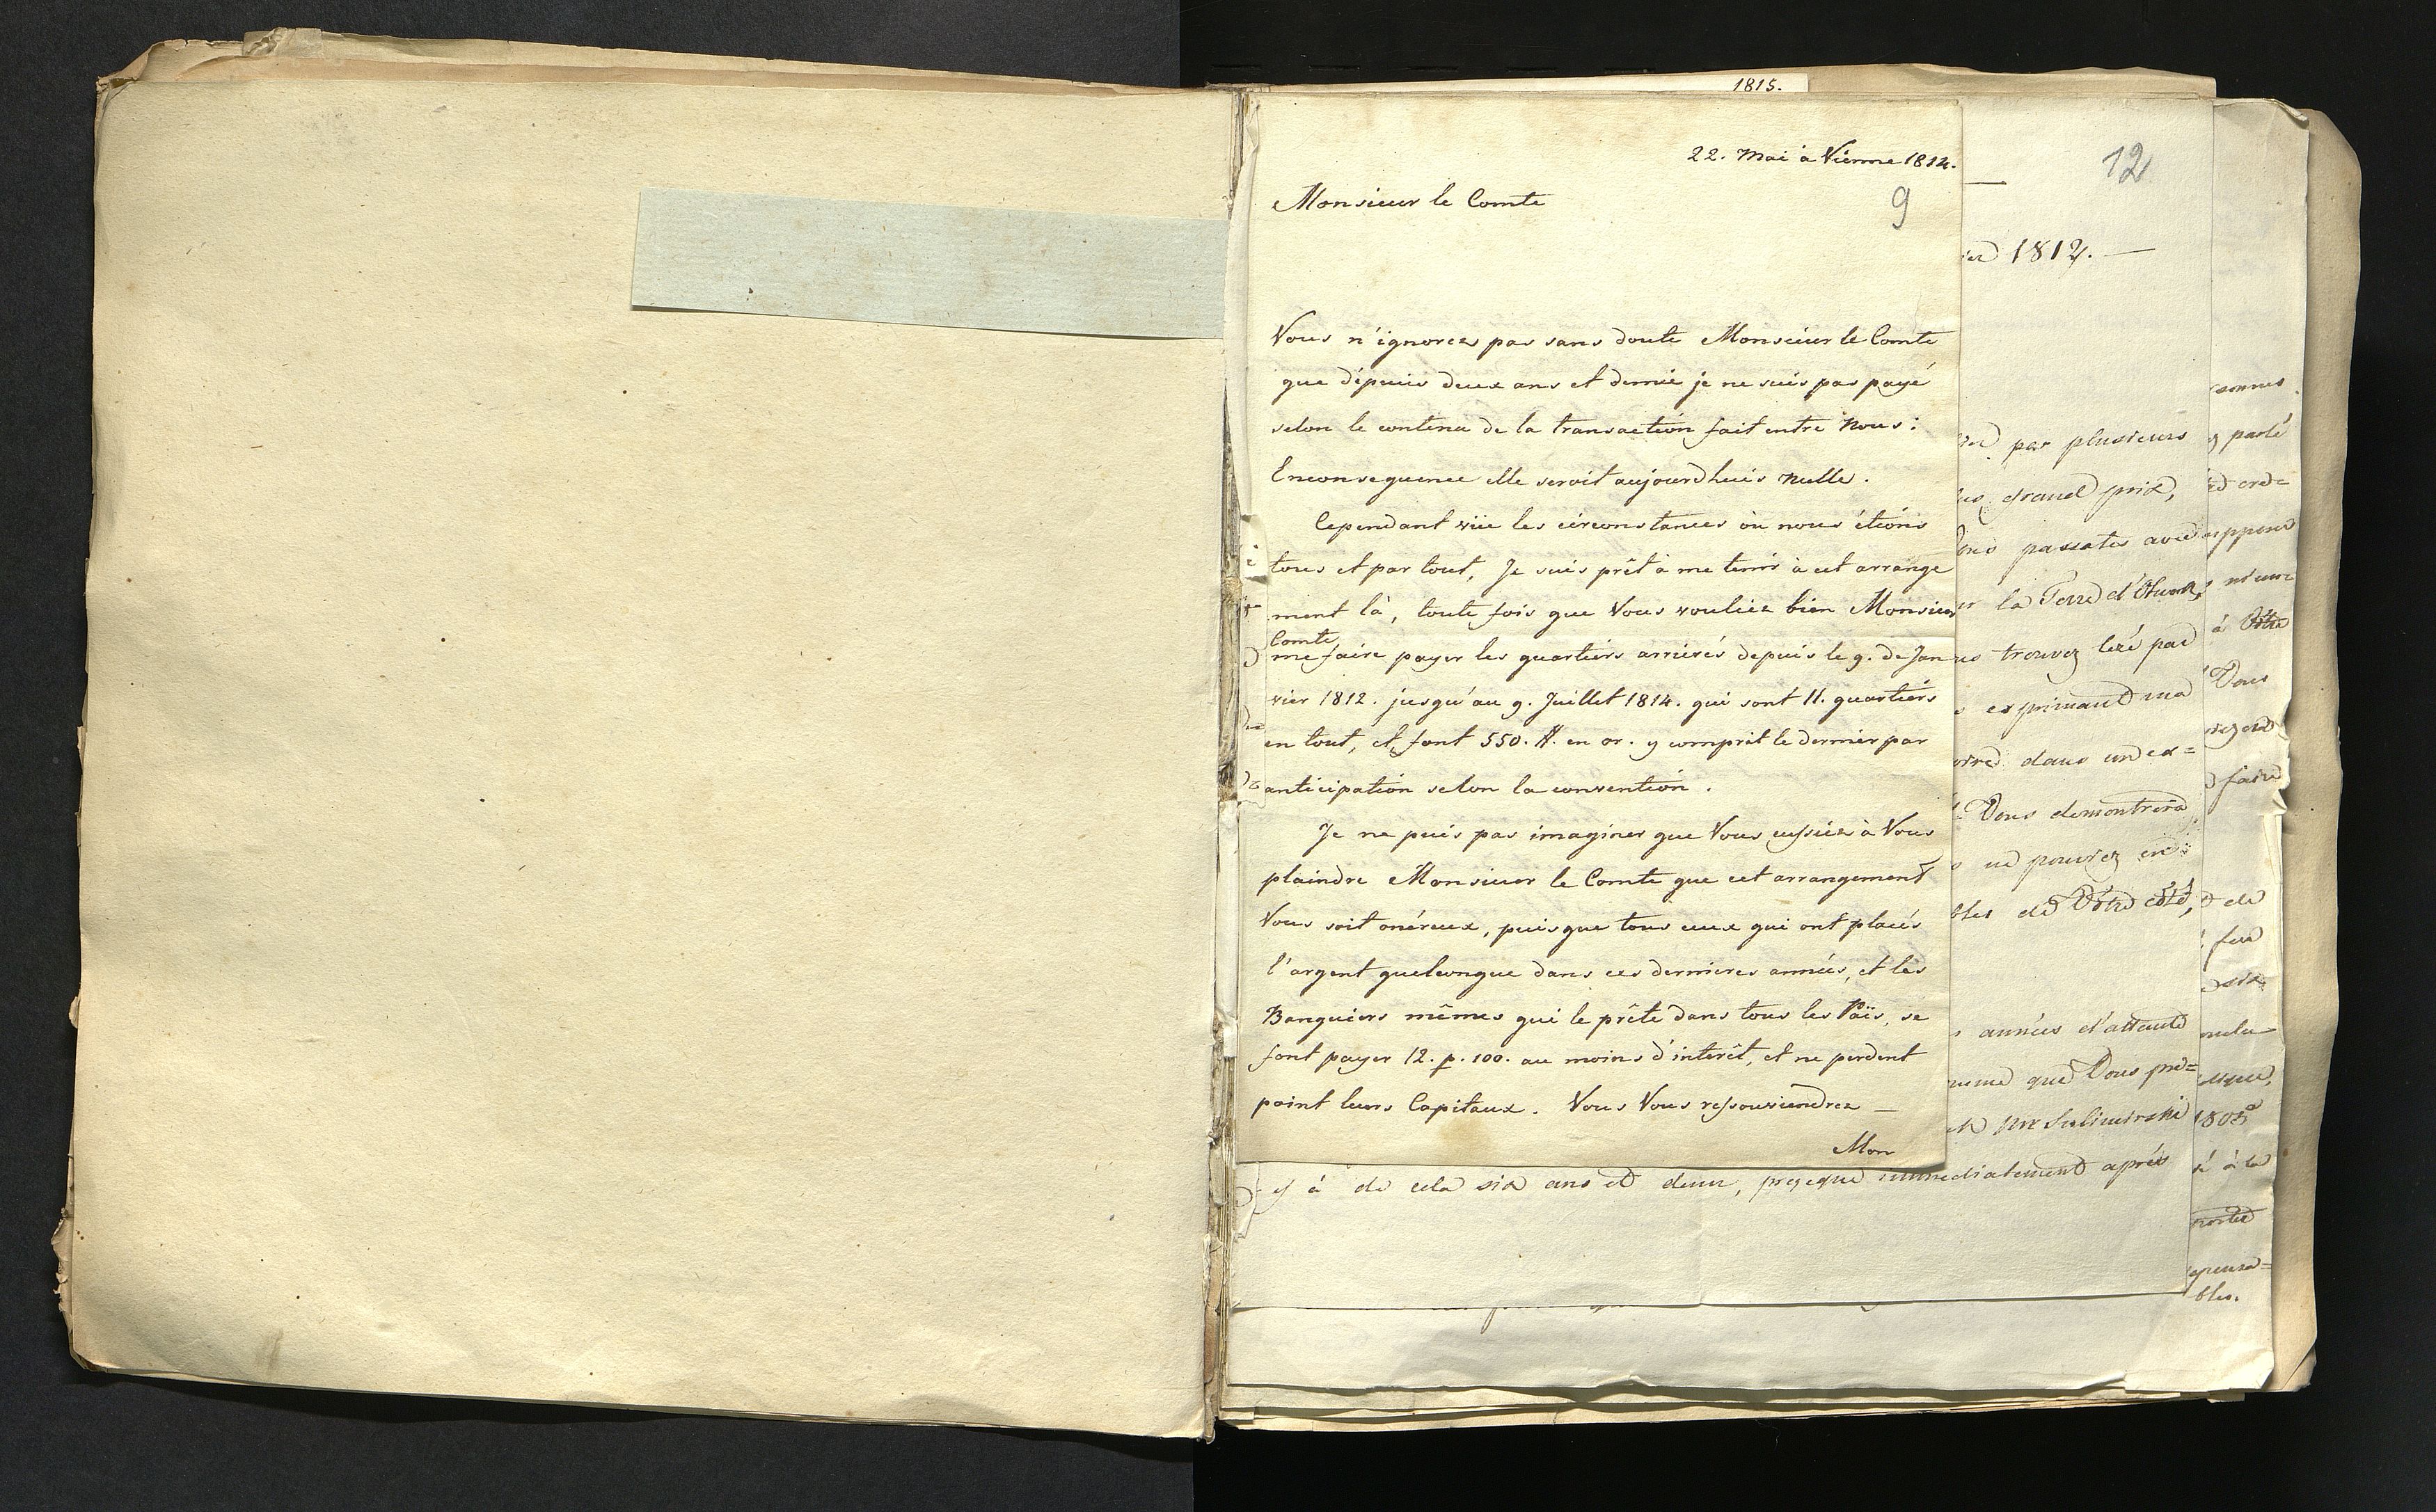 1815.
22. Mai à Vienne 1814.
Monsieur le Comte
9
Vous n'ignorez pas sans doute Monsieur le Comte
que dépuis deux ans et demie je ne suis pas payé
selon le contenu de la transaction fait entre Nous:
Enconsequence elle seroit aujourdhuis nulle.
Cependant vüe les circonstances où nous étions
tous et par tout, Je suis prêt à me tenir à cet arrange
ment là, toute fois que Vous vouliez bien Monsieur
Comte
me faire payer les quartiers arrierés depuis le 9. de Jan
vier 1812. jusqu'au 9. Juillet 1814. qui sont 11. quartiers
en tout, et font 550. # en or. y comprit le dernier par
anticipation selon la convention.
Je ne puis pas imaginer que Vous eussiez à Vous
plaindre Monsieur le Comte que cet arrangement
Vous soit onéreux, puisque tous ceux qui ont placés
l'argent quelconque dans ces dernieres années, et les
Banquiers mêmes qui le prête dans tous les Païs, se
font payer 12. p. 100. au moins d'interêt, et ne perdent
point leurs Capitaux. Vous Vous ressouviendrez —
Mon
12
1812. —
par plusieurs
grand prix,
passates avec
la Terre d'
trouvez lezé par
exprimant ma
dans un ex=
Vous demontrera
ne pouvez en
de Vôtre côté,
années d'attente
que Vous pre=
Mr Sulimirski
y à de cela six ans et demi, presque immediatement après
parlé
ord=
à Vôtre
Vous
faire
de
fue
six
1805
à la
bles.